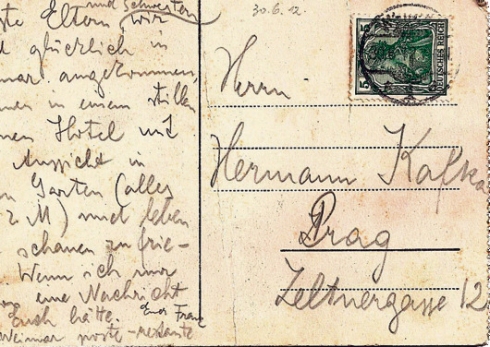 und Schwestern
Eltern, wir
glücklich in
mar angekommen,
in einem stillen
Hotel mit
Aussicht in
Garten (alles
2 M) und leben
schauen zufrie-
Wenn ich nur
eine Nachricht
Euch hätte. Euer Franz
Weimar poste-restante
30.6.12.
5
DEUTSCHES REICH
Herrn
Hermann Kafka
Prag
Zeltnergasse 12